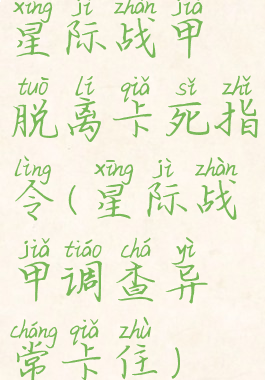 xīng jì zhàn jiǎ
星际战甲
tuō lí qiǎ sǐ zhǐ
脱离卡死指
lìng xīng jì zhàn
令(星际战
jiǎ tiáo chá yì
甲调查异
cháng qiǎ zhù
常卡住)